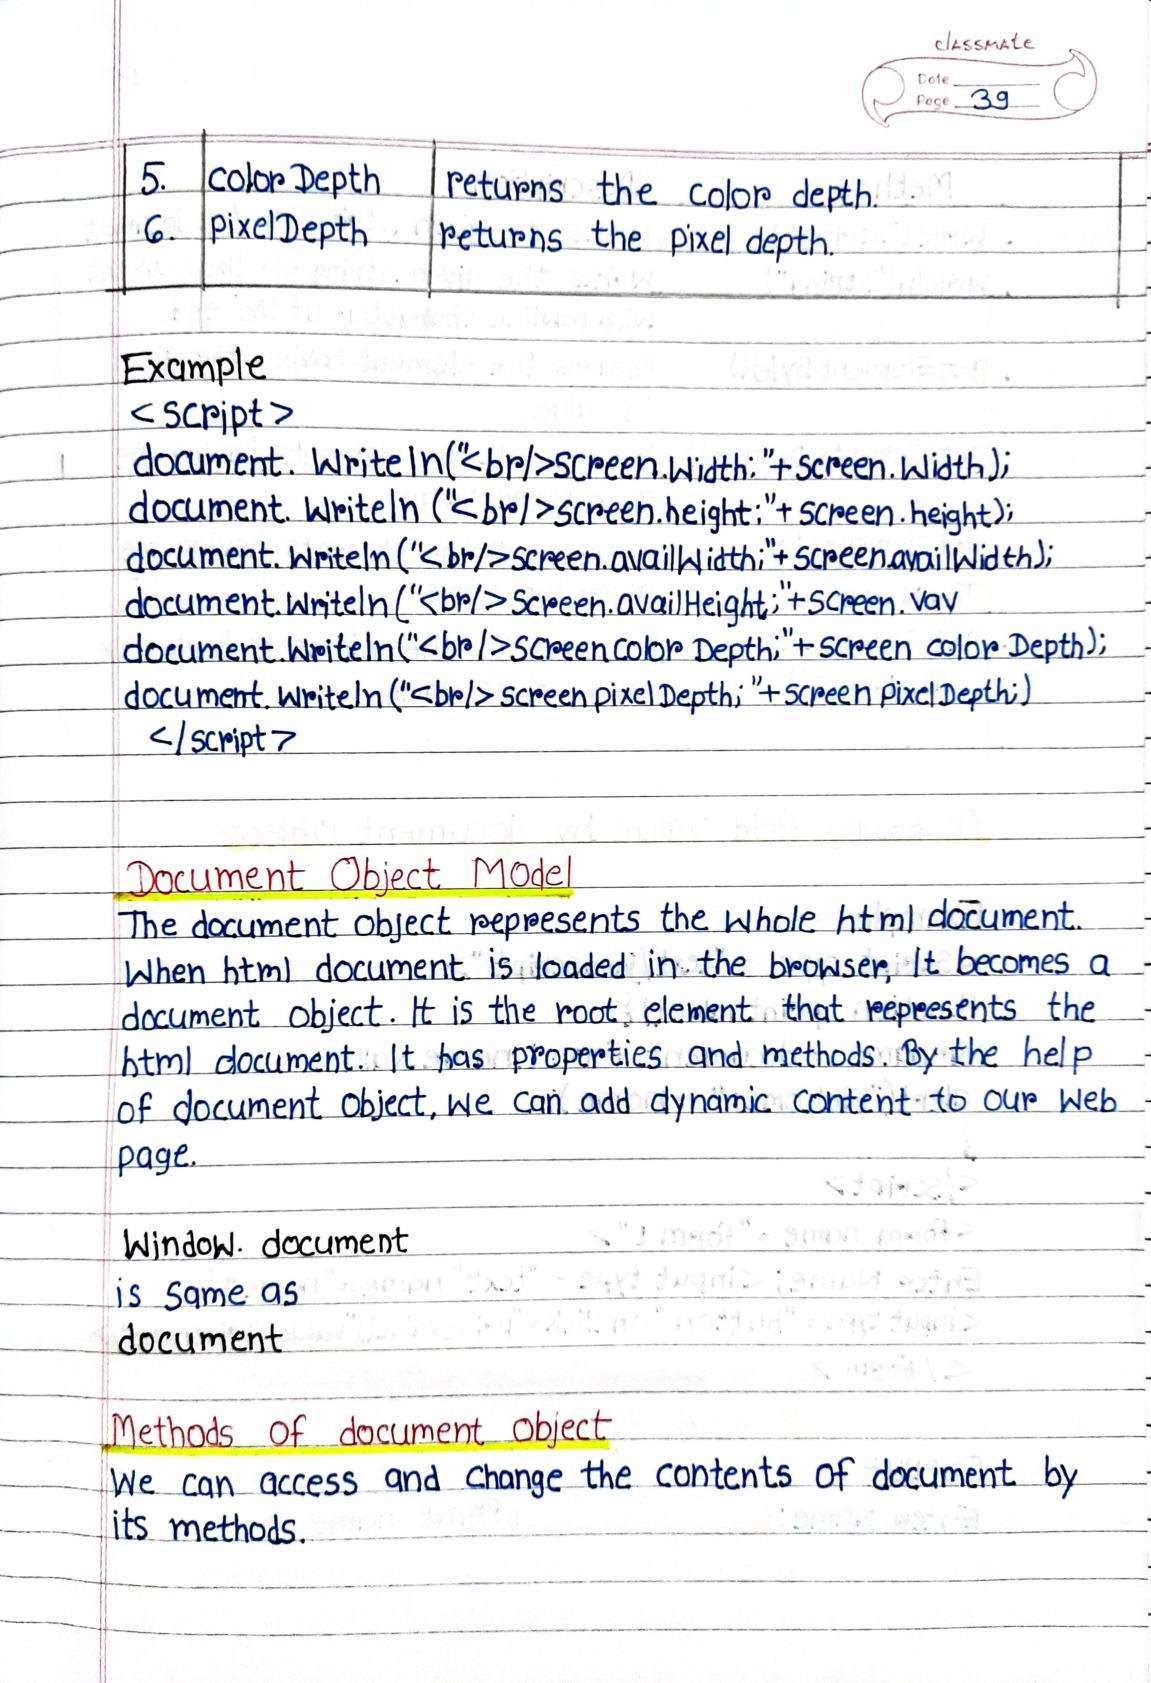 classmate
Date
Page 39
5. colorDepth returns the color depth.
6. pixelDepth returns the pixel depth.
Example
<script>
document. Writeln("<br/>screen.Width: "+screen.Width);
document. Writeln ("<br/>screen.height:"+screen.height);
document. Writeln ("<br/>screen.availWidth;"+screen.availWidth);
document.Writeln ("<br/>Screen.availHeight;"+screen.vav
document.Writeln("<br/>screen color Depth;"+screen color Depth);
document. Writeln ("<br/> screen pixelDepth; "+screen pixelDepth;)
</script>
Document Object Model
The document object represents the whole html document.
When html document is loaded in the browser, It becomes a
document object. It is the root element that represents the
html document. It has properties and methods. By the help
of document object, we can add dynamic content to our web
page.
Window. document
is same as
document
Methods of document object
We can access and change the contents of document by
its methods.